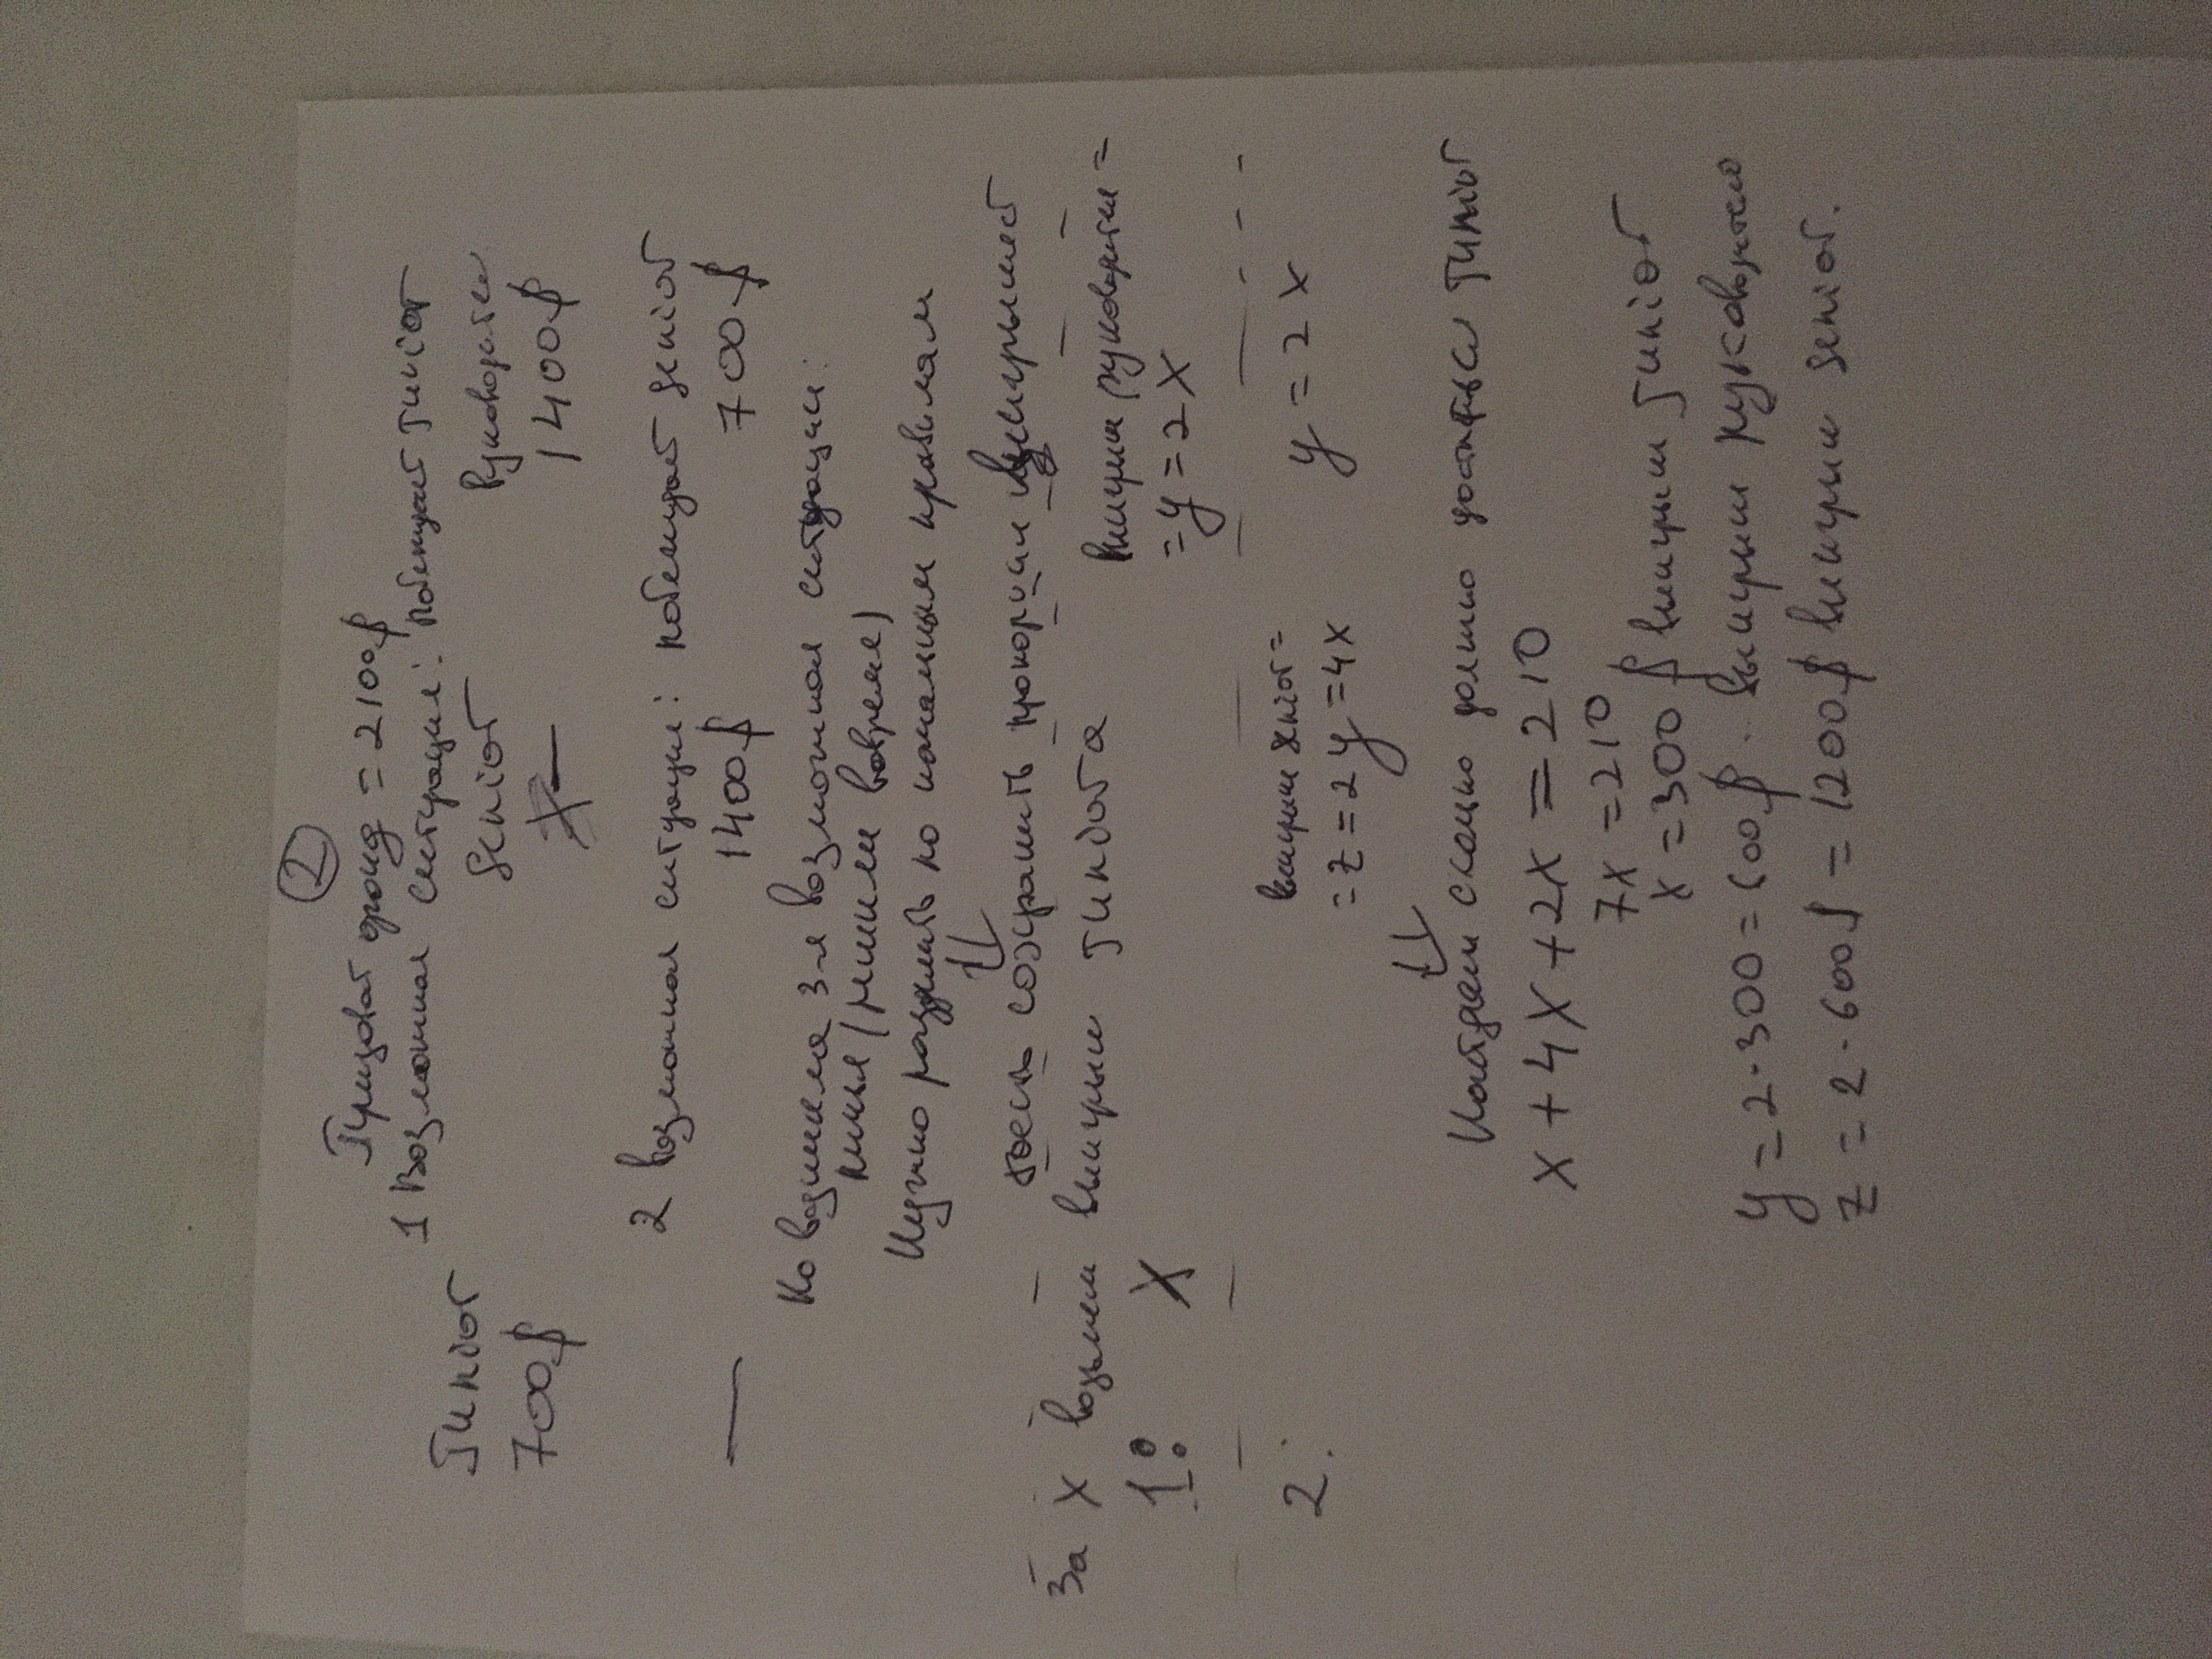 2
Призовой фонд = 2100$
1 Возможная ситуация: побеждает Junior
Junior Senior Руководитель
700$ — 1400$
2 возможная ситуация: побеждает Senior
— 1400$ 700$
Но возникла 3-я возможная ситуация:
ничья (решили вовремя)
Нужно разделить по начальным правилам
⇓
то есть сохранить пропорции выигрышей
За X возьмем выигрыш Juniora
Выигрыш руководителя =
1: X = y = 2X
выигрыш senior =
2: = z = 2y = 4x y = 2x
⇓
Найдем сколько должно достаться Junior
x + 4x + 2x = 210
7x = 210
x = 300$ выигрыш Junior
y = 2·300 = 600$ выигрыш руководителя
z = 2·600$ = 1200$ выигрыш senior.